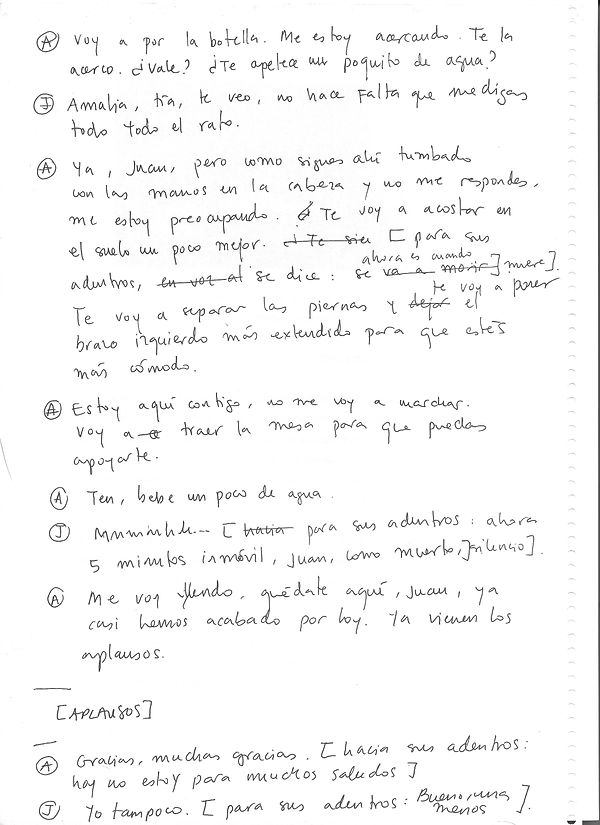 Ⓐ Voy a por la botella. Me estoy acercando. Te la
acerco. ¿Vale? ¿Te apetece un poquito de agua?
Ⓙ Amalia, tía, te veo, no hace falta que me digas
todo todo el rato.
Ⓐ Ya, Juan, pero como sigues ahí tumbado
con las manos en la cabeza y no me respondes,
me estoy preocupando. Te voy a acostar en
el suelo un poco mejor. ¿Te sien [para sus
adentros, en voz al se dice: ahora es cuando
se va a morir] muere].
Te voy a separar las piernas y dejar te voy a poner el
brazo izquierdo más extendido para que estés
más cómodo.
Ⓐ Estoy aquí contigo, no me voy a marchar.
Voy a traer la mesa para que puedas
apoyarte.
Ⓐ Ten, bebe un poco de agua.
Ⓙ [hacia para sus adentros: ahora
5 minutos inmóvil, Juan, como muerto,] silencio].
Ⓐ Me voy yendo, quédate aquí, Juan, ya
casi hemos acabado por hoy. Ya vienen los
aplausos.
[APLAUSOS]
Ⓐ Gracias, muchas gracias. [hacia sus adentros:
hoy no estoy para muchos saludos]
Ⓙ Yo tampoco. [para sus adentros: Bueno, una
menos].